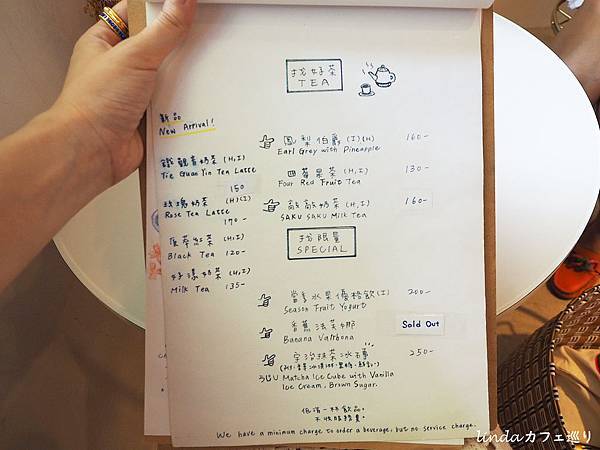 找好茶
TEA
新品
New Arrival!
鐵觀音奶茶 (H,I)
Tie Guan Yin Tea Latte
150
玫瑰奶茶 (H)(I)
Rose Tea Latte
170-
(H,I)
Black Tea 120-
好漾奶茶 (H,I)
Milk Tea 135-
鳳梨伯爵 (I)(H) 160-
Earl Grey with Pineapple
四莓果茶 (H,I) 130-
Four Red Fruit Tea
奶茶 (H,I) 160-
SAKU SAKU Milk Tea
找限量
SPECIAL
當季水果優格飲(I) 200-
Season Fruit Yogurt
香蕉法芙娜 Sold Out
Banana Valrhona
宇治抹茶冰 250-
Matcha Ice Cube with Vanilla
Ice Cream, Brown Sugar.
低消一杯飲品。
不收服務費。
We have a minimum charge to order a beverage, but no service charge.
lindaカフェ巡り